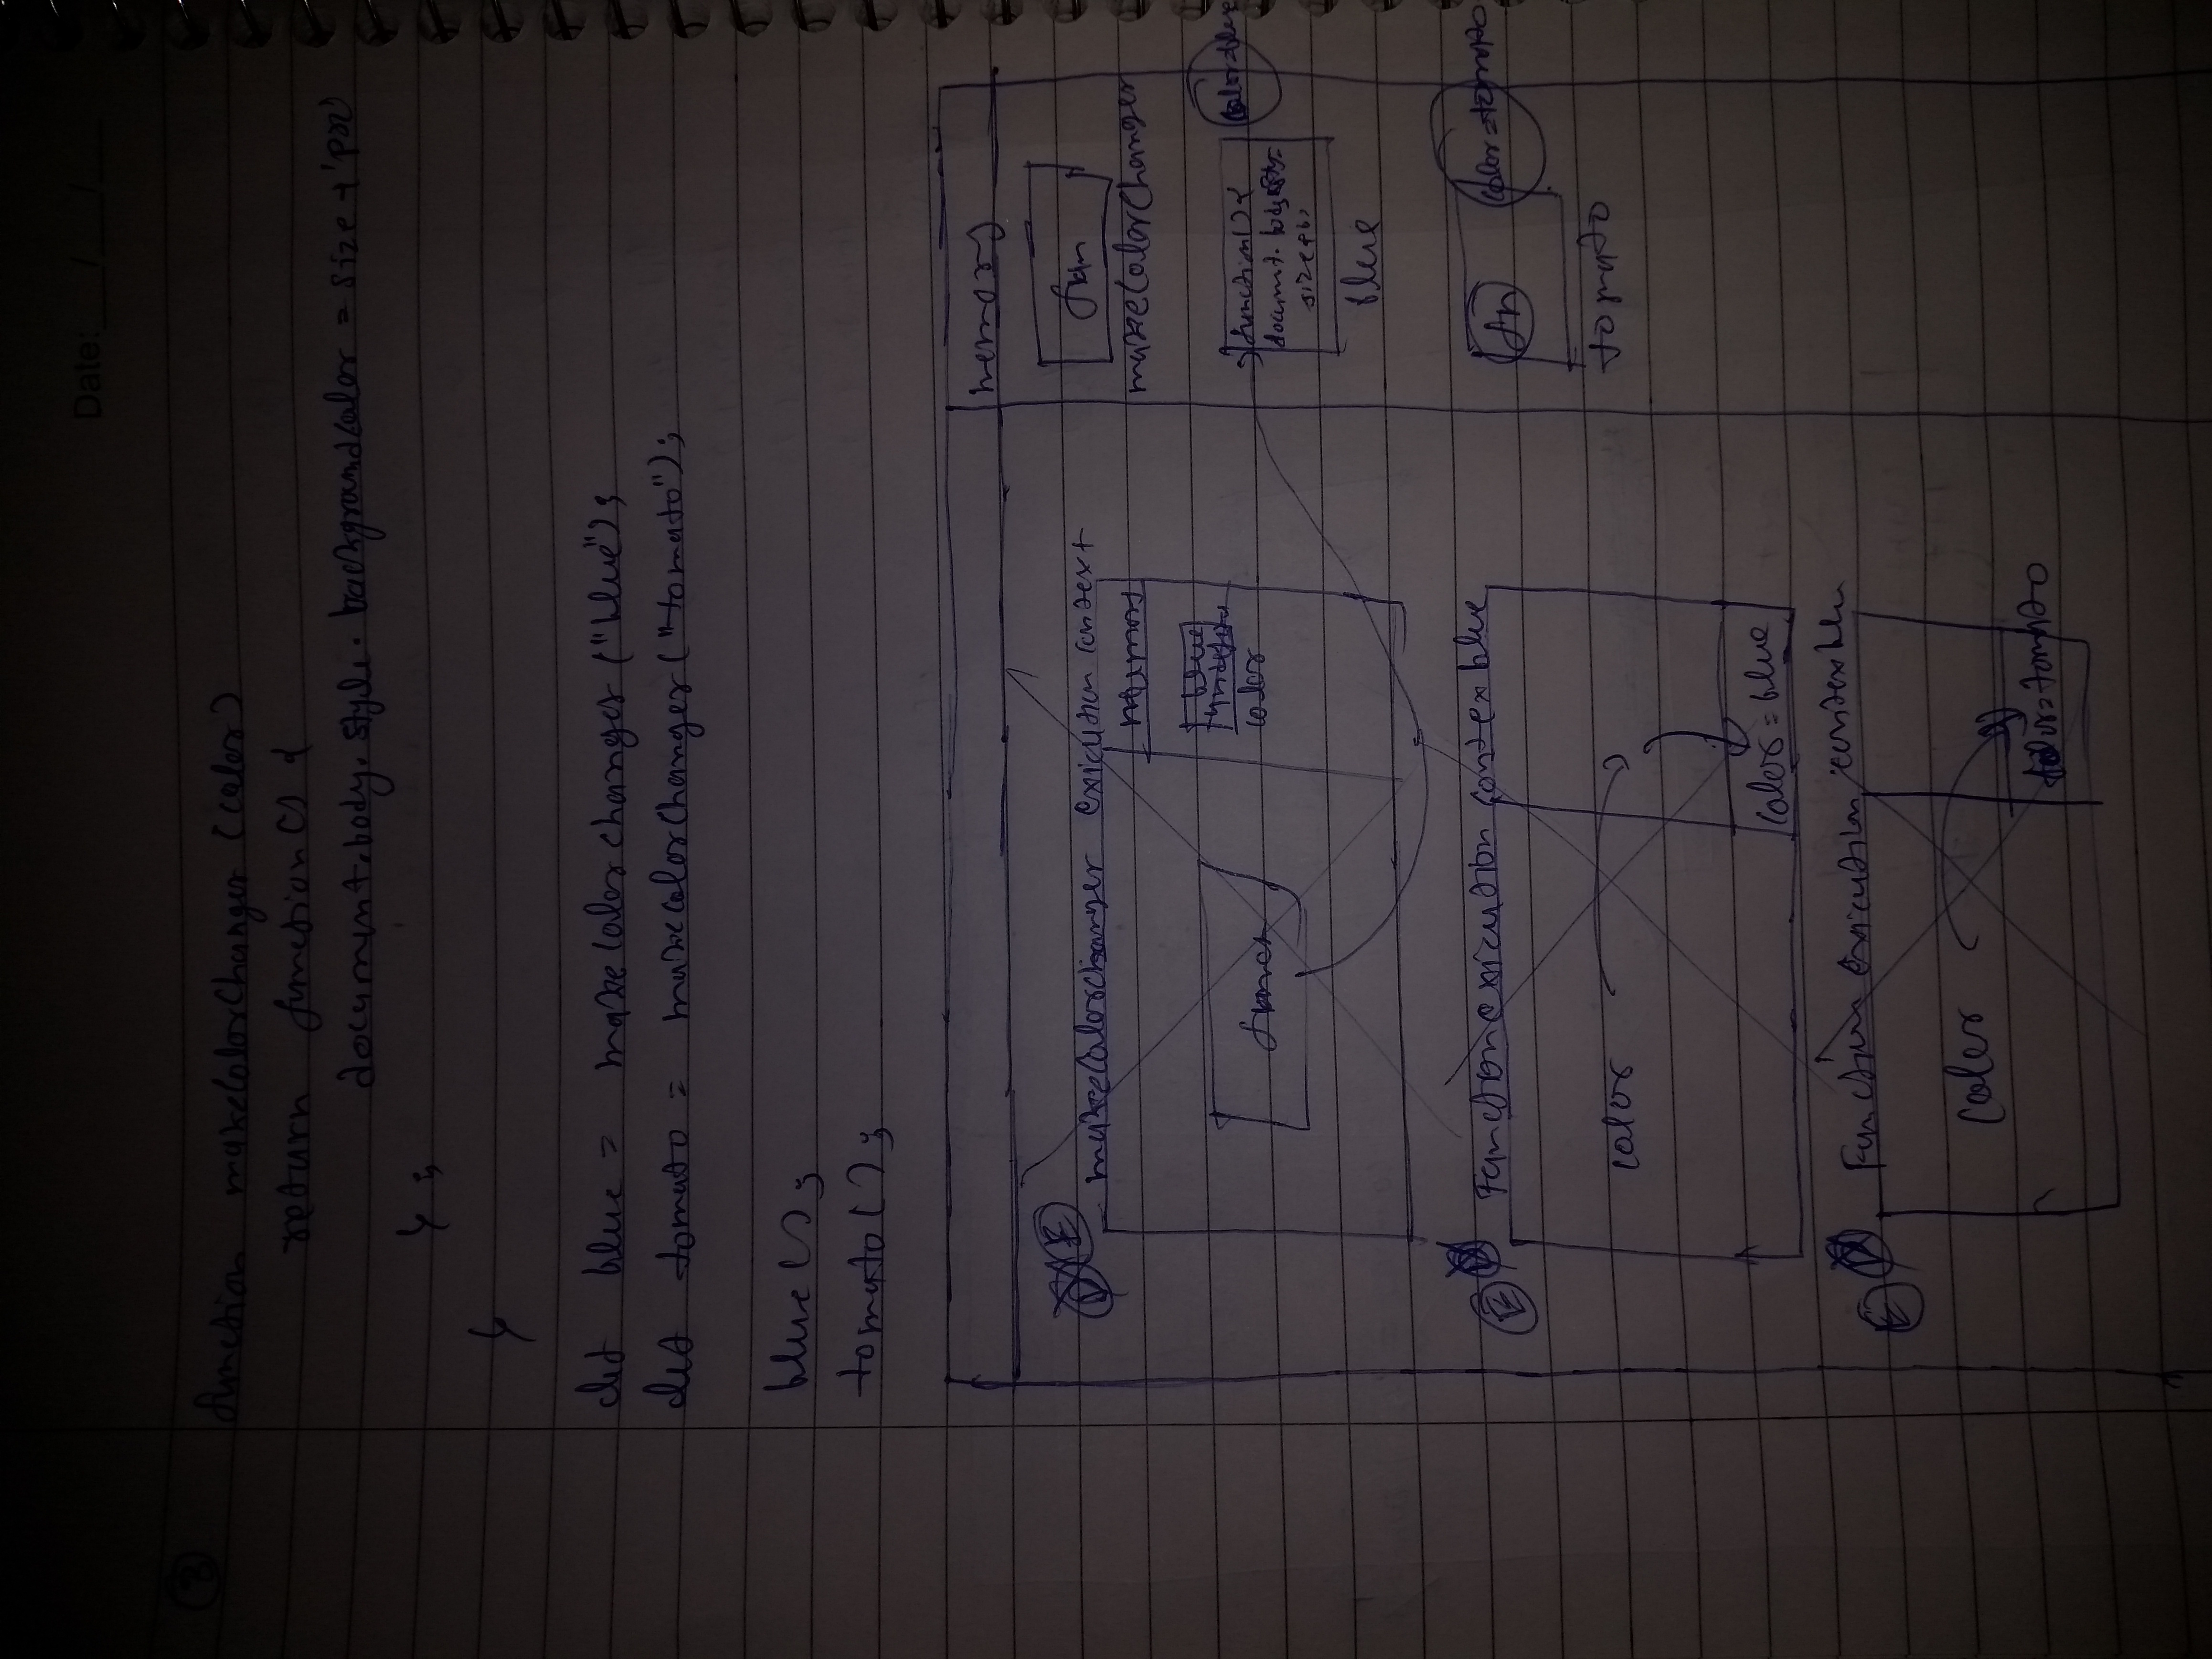 Date: / /
3
function makeColorChanger (color)
return function () {
document.body.style.backgroundColor = size + 'px'
};
}
let blue = makeColorChanger ("blue");
let tomato = makeColorChanger ("tomato");
blue ();
tomato ();
memory
fun
makeColorChanger
color=blue
function() {
blue
fn
color=tomato
tomato
makeColorChanger exicution context
memory
blue
color
Function exicution context blue
color
color = blue
Function exicution
color
color=tomato